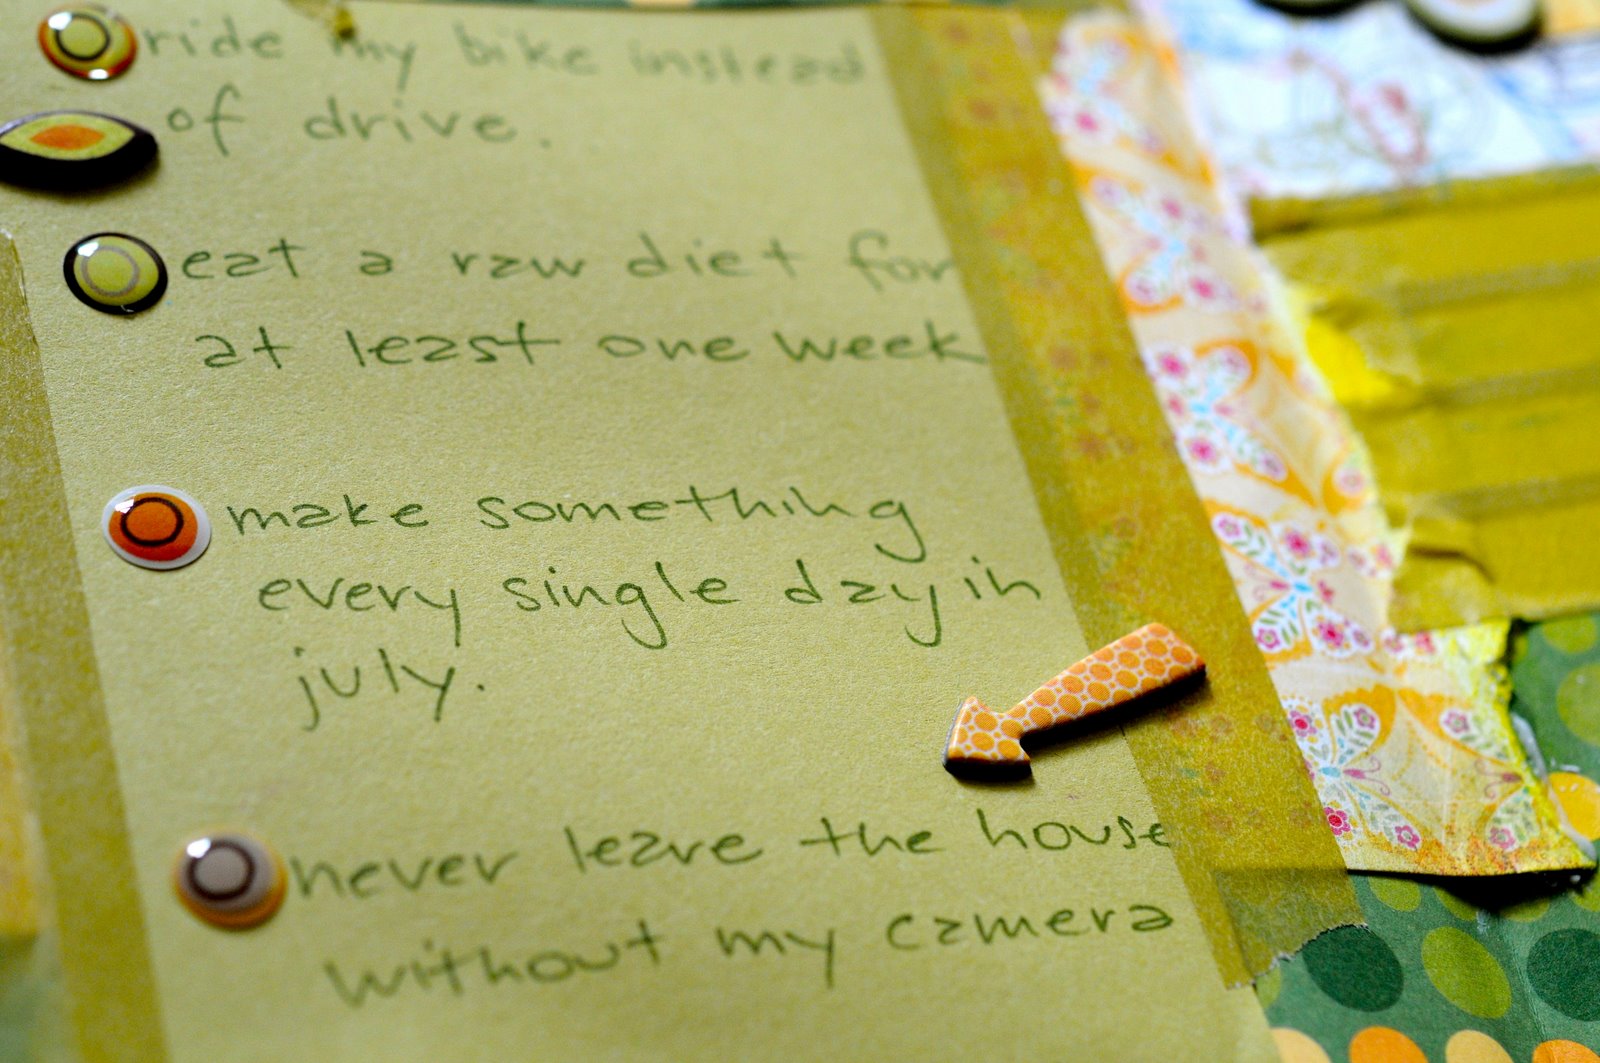 ride my bike instead
of drive.
eat a raw diet for
at least one week
make something
every single day in
july.
never leave the house
without my camera